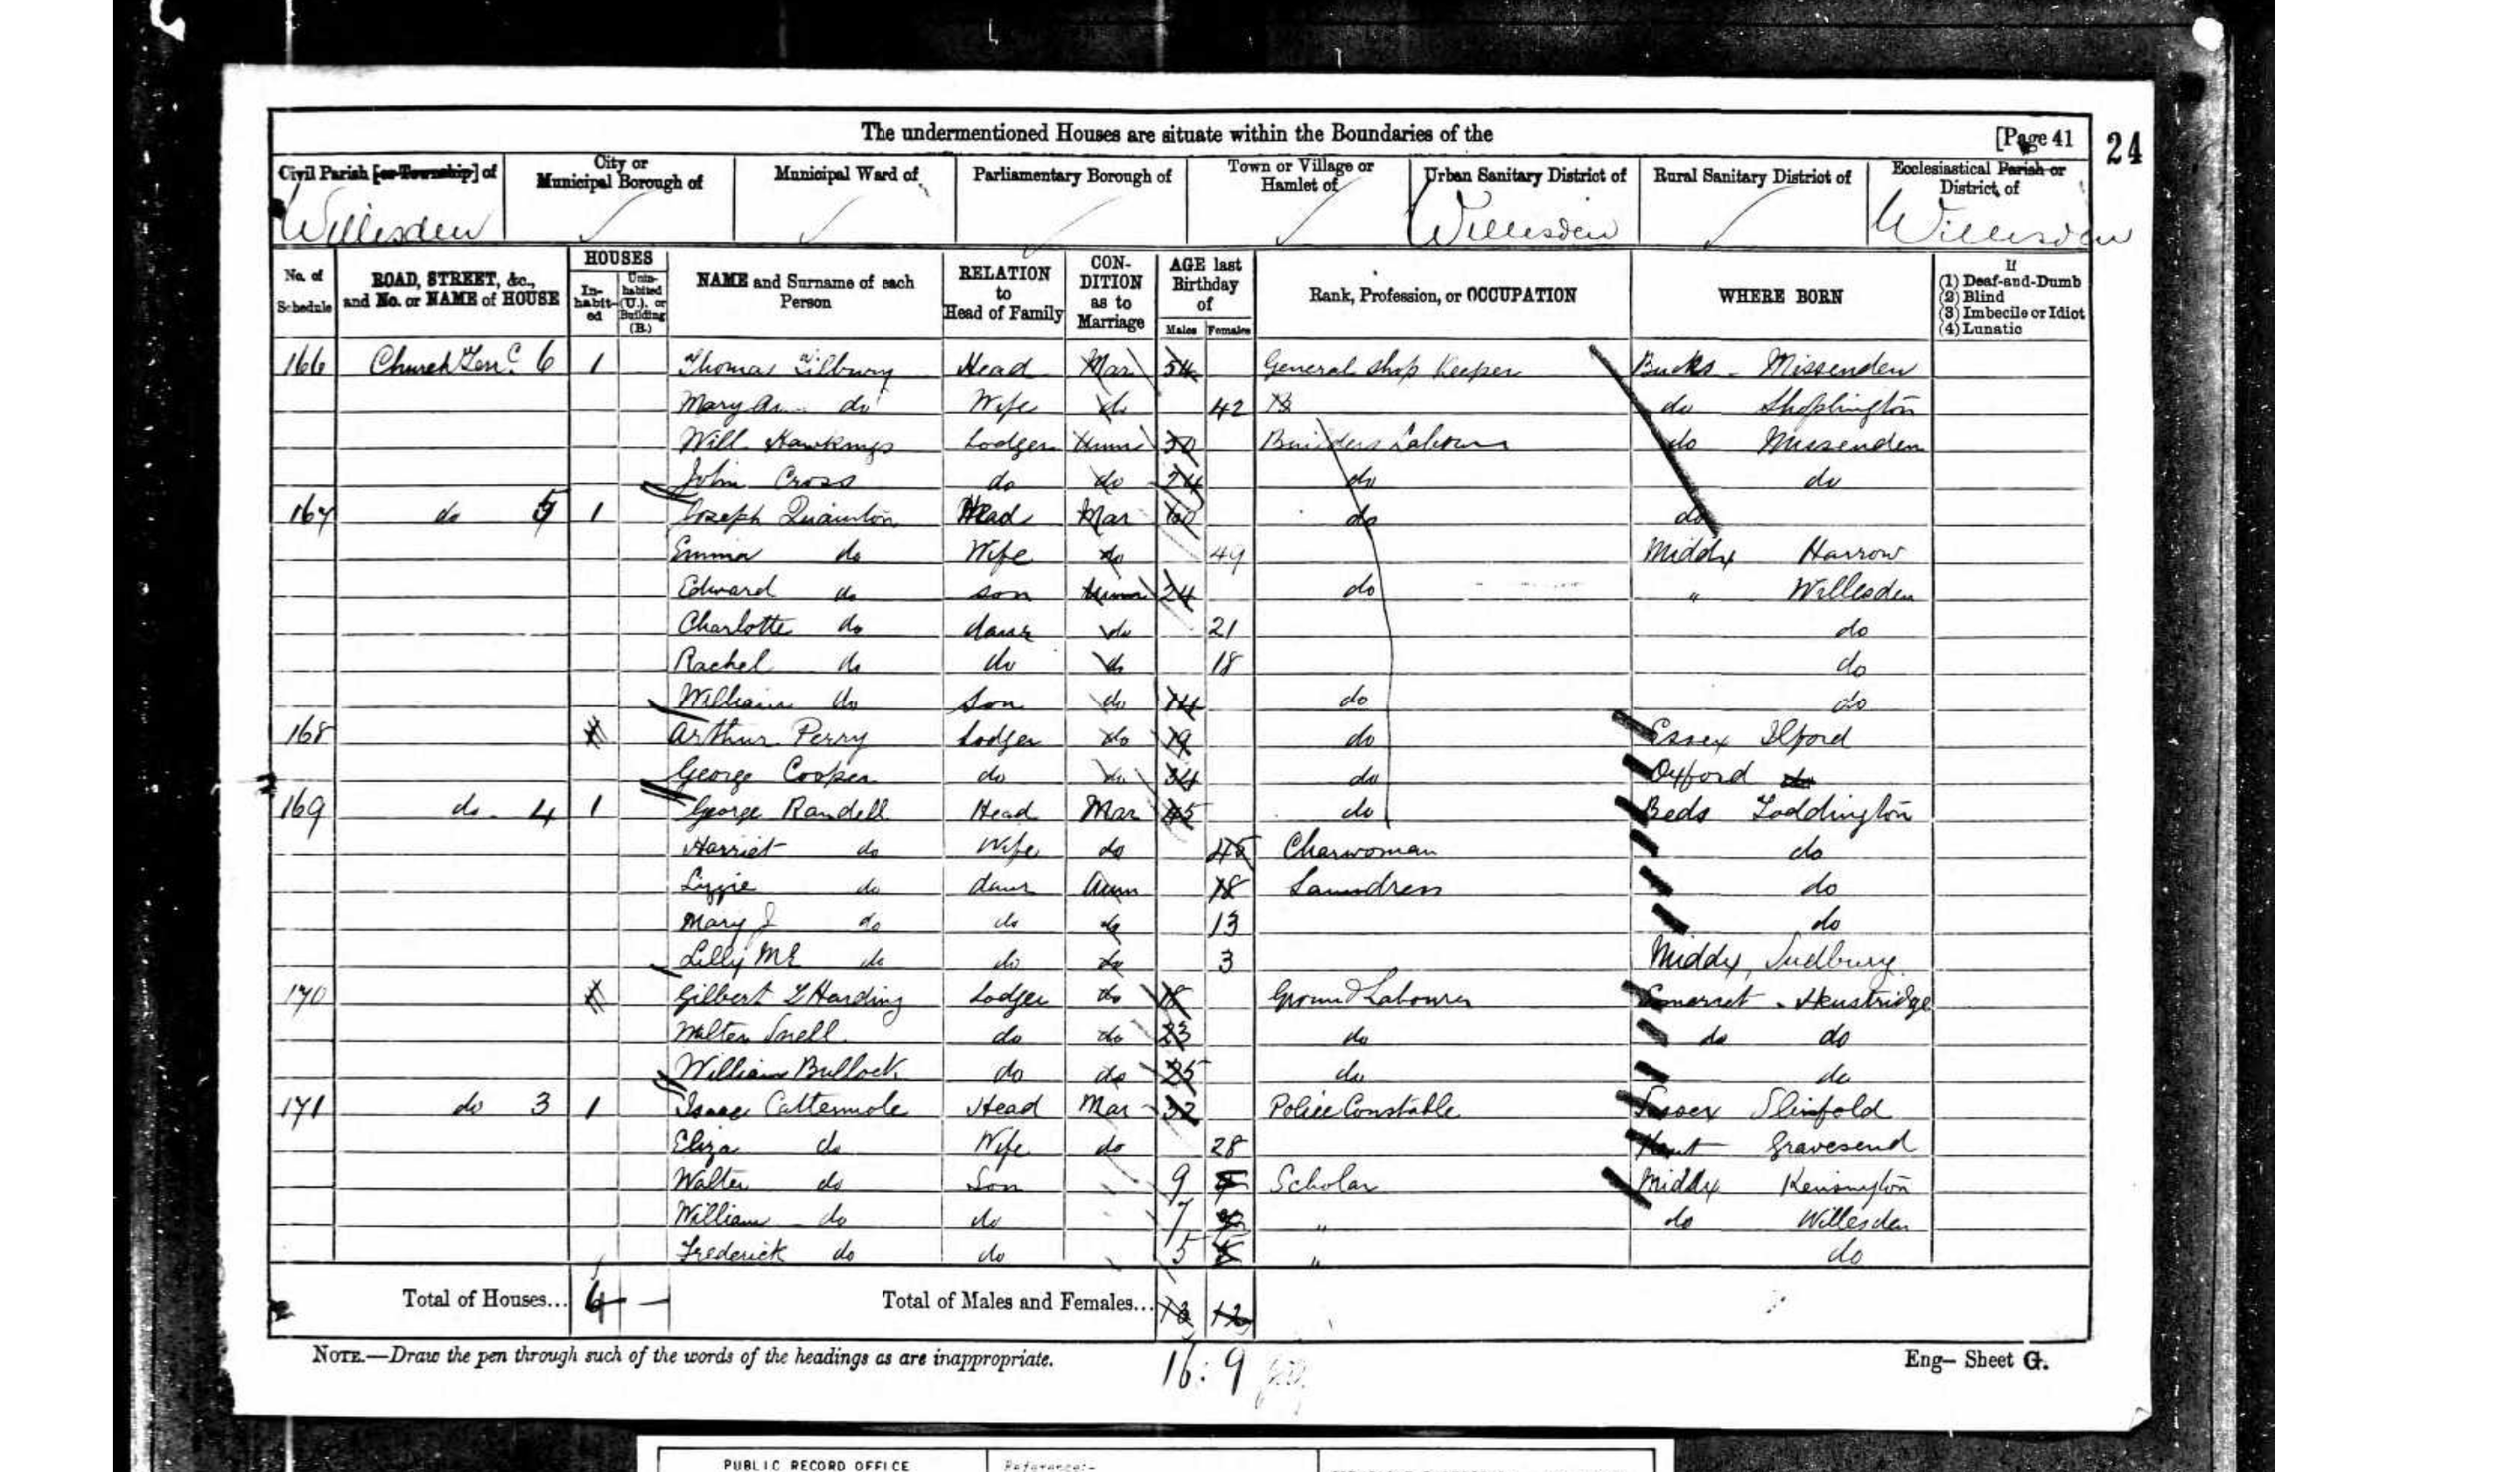 The undermentioned Houses are situate within the Boundaries of the
[Page 41
24
Civil Parish [or Township] of
City or Municipal Borough of
Municipal Ward of
Parliamentary Borough of
Town or Village or Hamlet of
Urban Sanitary District of
Rural Sanitary District of
Ecclesiastical Parish or District of
Willesden
Willesden
Willesden
No. of Schedule
ROAD, STREET, &c., and No. or NAME of HOUSE
HOUSES
In-habit-ed
Unin-habited (U.), or Building (B.)
NAME and Surname of each Person
RELATION to Head of Family
CON-DITION as to Marriage
AGE last Birthday of
Males Females
Rank, Profession, or OCCUPATION
WHERE BORN
If
(1) Deaf-and-Dumb
(2) Blind
(3) Imbecile or Idiot
(4) Lunatic
166 Church Terrc 6 1 Thomas Wilbury Head Mar 54 General Shop Keeper Bucks - Missenden
Mary An do Wife do 42 do
Will Hawkings Lodger Unm 30 Builders Labour do Missenden
John Cross do do 24 do do
167 do 5 1 Joseph Quainton Head Mar 60 do do
Emma do Wife do 49 Middx Harrow
Edward do son Unm 24 do " Willesden
Charlotte do daur do 21 do
Rachel do do do 18 do
William do Son do 14 do do
168 Arthur Perry Lodger do 19 do Essex Ilford
George Cooper do do 34 do Oxford do
169 do 4 1 George Randell Head Mar 45 do Beds Toddington
Harriet do Wife do 45 Charwoman do
Lizzie do daur Unm 18 Laundress do
Mary J do do do 13 do
Lilly ME do do do 3 Middx, Sudbury
170 Gilbert L Harding Lodger do 18 Ground Labourer Somerset - Henstridge
Walter Snell do do 23 do do do
William Bullock do do 25 do do
171 do 3 1 Isaac Cattermole Head Mar 32 Police Constable Slinfold
Eliza do Wife do 28 Kent Gravesend
Walter do Son 9 Scholar Middx Kensington
William do do 7 " do Willesden
Frederick do do 5 " do
Total of Houses... 4 —
Total of Males and Females... 13 12
NOTE.—Draw the pen through such of the words of the headings as are inappropriate.
16 : 9
Eng— Sheet G.
PUBLIC RECORD OFFICE
Reference:-